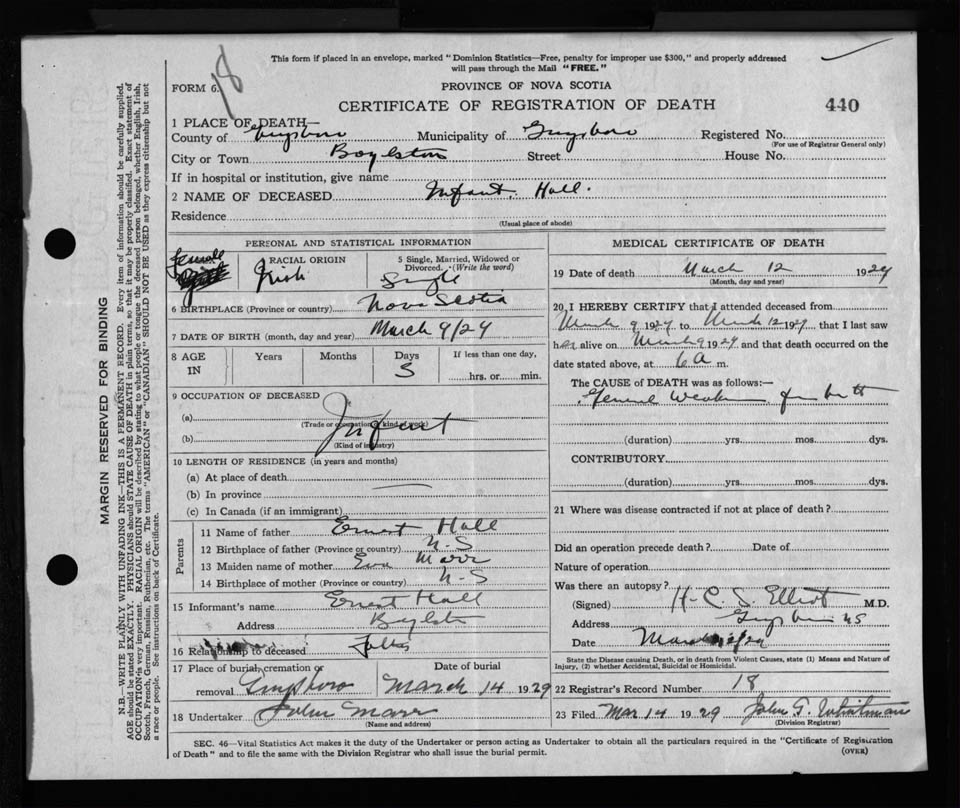 18
This form if placed in an envelope, marked "Dominion Statistics—Free, penalty for improper use $300," and properly addressed
will pass through the Mail "FREE."
FORM 6.
PROVINCE OF NOVA SCOTIA
CERTIFICATE OF REGISTRATION OF DEATH
440
1 PLACE OF DEATH—
County of Guysboro Municipality of Guysboro Registered No.
(For use of Registrar General only)
City or Town Boylston Street House No.
If in hospital or institution, give name
2 NAME OF DECEASED Infant Hall.
Residence
(Usual place of abode)
PERSONAL AND STATISTICAL INFORMATION
female
RACIAL ORIGIN
Irish
5 Single, Married, Widowed or Divorced. (Write the word)
Single
6 BIRTHPLACE (Province or country) Nova Scotia
7 DATE OF BIRTH (month, day and year) March 9/29
8 AGE IN Years Months Days If less than one day,
3 hrs. or min.
9 OCCUPATION OF DECEASED
(a)
(Trade or occupation or kind of work)
Infant
(b)
(Kind of industry)
10 LENGTH OF RESIDENCE (in years and months)
(a) At place of death
(b) In province
(c) In Canada (if an immigrant)
Parents
11 Name of father Ernest Hall
12 Birthplace of father (Province or country) N.S
13 Maiden name of mother Marr
14 Birthplace of mother (Province or country) N-S
15 Informant's name Ernest Hall
Address
16 Relationship to deceased Father
17 Place of burial, cremation or removal Guysboro
Date of burial
March 14 1929
18 Undertaker John Marr
(Name and address)
MEDICAL CERTIFICATE OF DEATH
19 Date of death March 12 1929
(Month, day and year)
20 I HEREBY CERTIFY that I attended deceased from
March 9 1929 to March 12 1929 that I last saw
her alive on March 9 1929 and that death occurred on the
date stated above, at 6 A m.
The CAUSE of DEATH was as follows:—
General Weakness from birth
(duration) yrs. mos. dys.
CONTRIBUTORY
(duration) yrs. mos. dys.
21 Where was disease contracted if not at place of death?
Did an operation precede death? Date of
Nature of operation
Was there an autopsy?
(Signed) H. C. S. Elliot M.D.
Address Guysboro NS
Date March 12/29
State the Disease causing Death, or in death from Violent Causes, state (1) Means and Nature of
Injury, (2) whether Accidental, Suicidal or Homicidal.
22 Registrar's Record Number 18
23 Filed Mar 14 1929 John G. Whitman
(Division Registrar)
SEC. 46—Vital Statistics Act makes it the duty of the Undertaker or person acting as Undertaker to obtain all the particulars required in the "Certificate of Registration
of Death" and to file the same with the Division Registrar who shall issue the burial permit.
(OVER)
MARGIN RESERVED FOR BINDING
N.B.—WRITE PLAINLY WITH UNFADING INK—THIS IS A PERMANENT RECORD. Every item of information should be carefully supplied.
AGE should be stated EXACTLY. PHYSICIANS should STATE CAUSE OF DEATH in plain terms, so that it may be properly classified. Exact statement of
OCCUPATION is very important. RACIAL ORIGIN will be described by stating to what people or tongue the deceased person belonged, whether English, Irish,
Scotch, French, German, Russian, Ruthenian, etc. The terms "AMERICAN" or "CANADIAN" SHOULD NOT BE USED as they express citizenship but not
a race or people. See instructions on back of Certificate.